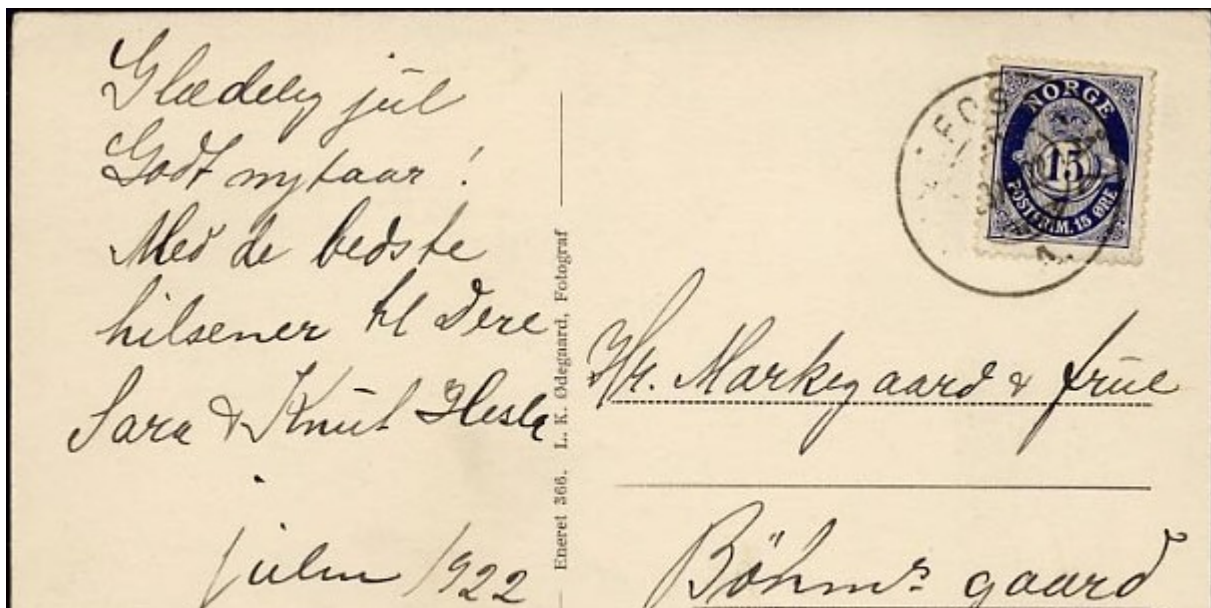 Glædelig jul
Godt nytaar!
Med de bedste
hilsener til Dere
Sara & Knut Hesla
julen 1922
Eneret 366. L. K. Ødegaard, Fotograf
NORGE
15
POSTFRIM. 15 ØRE
Hr. Markegaard & frue
Bøhms gaard